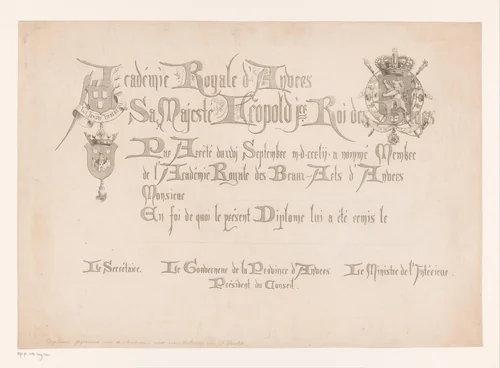 Académie Royale d'Anvers
Sa Majesté Léopold Ier Roi des Belges
Par Arêté du Septembre a nommé Membre
de l'Académie Royale des Beaux-Arts d'Anvers
Monsieur
En foi de quoi le présent Diplome lui a été remis le
Le Secrétaire. Le Gouverneur de la Province d'Anvers Le Ministre de l'Intérieur.
Président du Conseil.